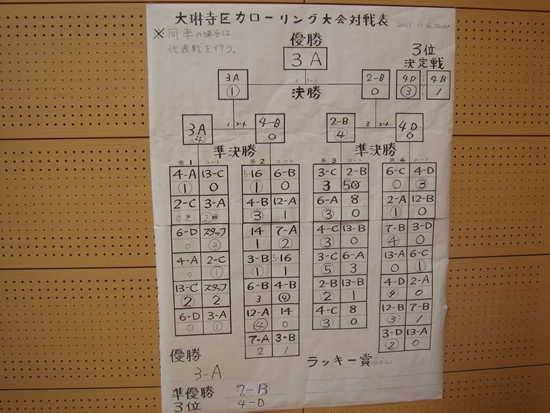 大琳寺区カローリング大会対戦表
※同率の場合は
代表戦を行う。
優勝
3 A
3位
決定戦
3 A 2-B 4D 4-B
① 0 ③ 1
決勝
3A 4-B 2-B 4D
④ 0 ④ 0
準決勝 準決勝
第1コート 第2コート 第3コート 第4コート
4-A 13-C 16 6-B 3-C 2-B 6-C 4-D
① 0 ① 0 3 0 ③
2-C 3-A 4-B 12-A 6-A 8 2-A 12-B
③ 1 3 0 ① 0
6-D スタッフ 14 7-A 4-C 13-B 7-B 3-D
0 ② 1 ② ③ 0 ④ 0
4-A 2-C 3-B 16 3-C 6-A 13-A 6-C
0 ① ① 1 ⑤ 3 0 ①
13-C スタッフ 6-B 4-B 2-B 13-B 4-D 2-A
2 2 3 ④ ② 1 0
6-D 3-A 12-A 14 4-C 8 12-B 7-B
0 ① ④ 0 ③ 0 ③ 1
7-A 3-B 3-D 13-A
2 1 ② 0
優勝
3-A
準優勝 2-B
3位 4-D
ラッキー賞